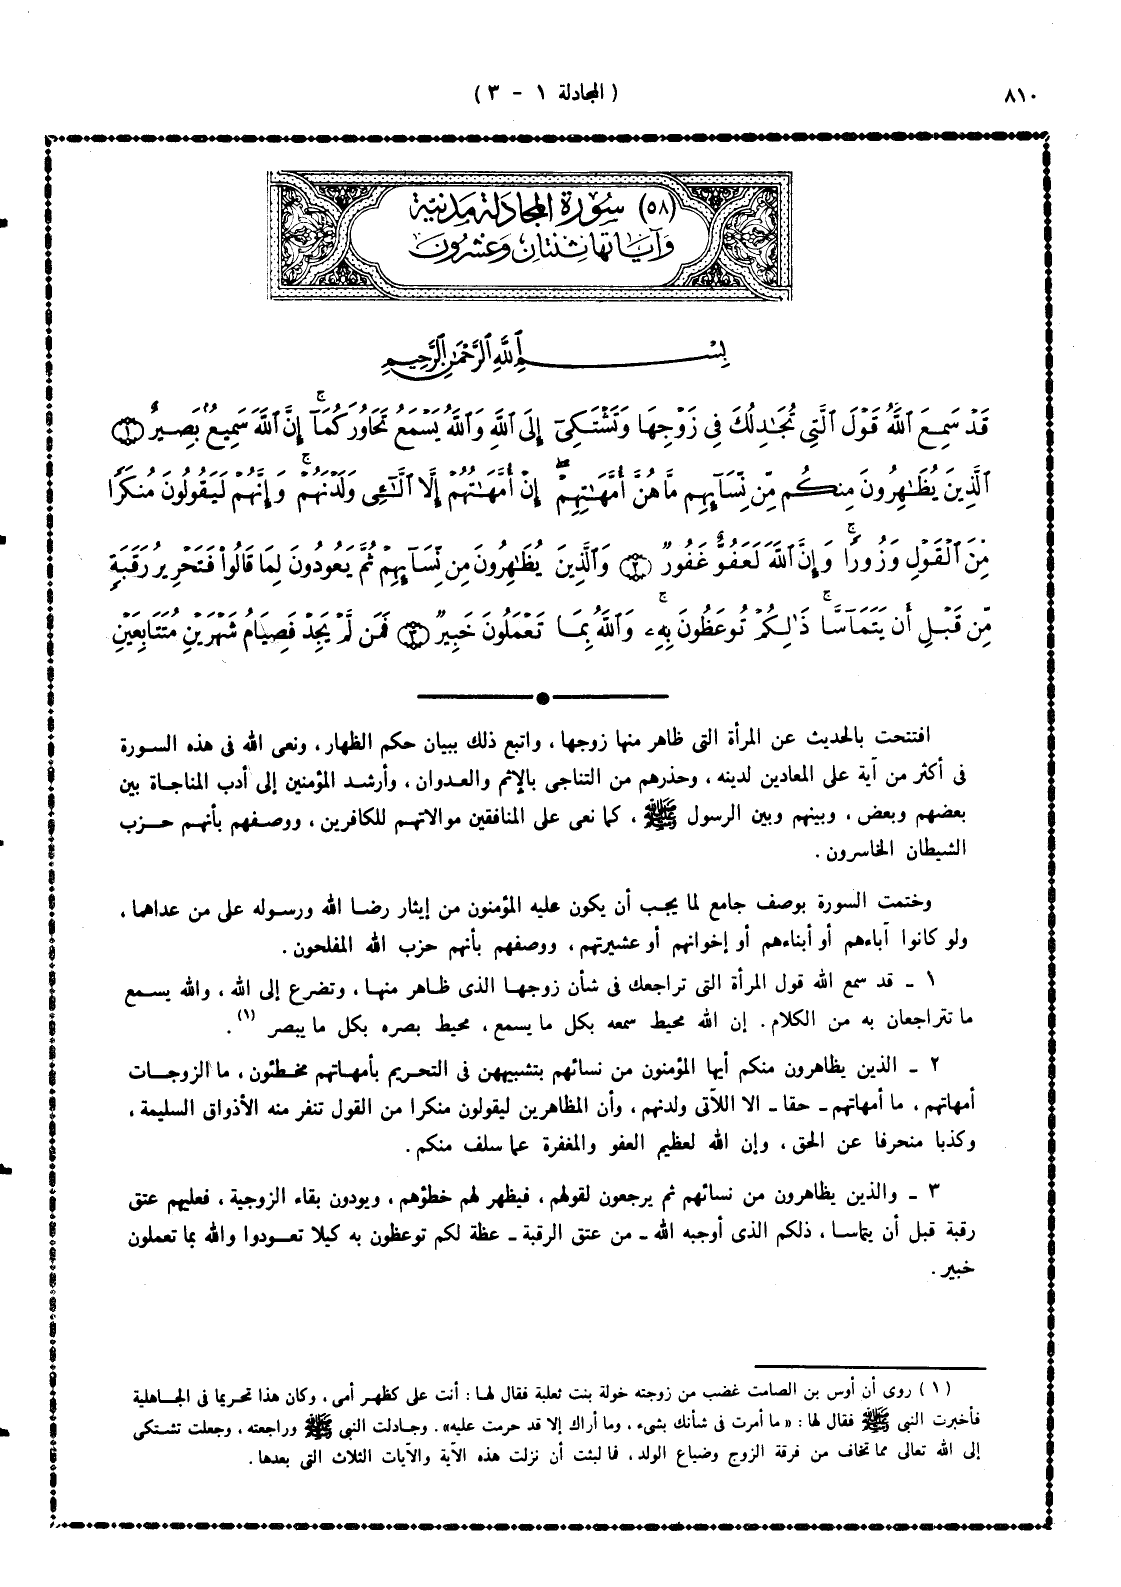 ٨١٠
( المجادلة ١ - ٣ )
(٥٨) سورة المجادلة مدنية
وآياتها ثنتان وعشرون
بِسْمِ ٱللَّهِ ٱلرَّحْمَٰنِ ٱلرَّحِيمِ
قَدْ سَمِعَ ٱللَّهُ قَوْلَ ٱلَّتِى تُجَٰدِلُكَ فِى زَوْجِهَا وَتَشْتَكِىٓ إِلَى ٱللَّهِ وَٱللَّهُ يَسْمَعُ تَحَاوُرَكُمَآ ۚ إِنَّ ٱللَّهَ سَمِيعٌۢ بَصِيرٌ ﴿١﴾
ٱلَّذِينَ يُظَٰهِرُونَ مِنكُم مِّن نِّسَآئِهِم مَّا هُنَّ أُمَّهَٰتِهِمْ ۖ إِنْ أُمَّهَٰتُهُمْ إِلَّا ٱلَّٰٓـِٔى وَلَدْنَهُمْ ۚ وَإِنَّهُمْ لَيَقُولُونَ مُنكَرًا
مِّنَ ٱلْقَوْلِ وَزُورًا ۚ وَإِنَّ ٱللَّهَ لَعَفُوٌّ غَفُورٌ ﴿٢﴾ وَٱلَّذِينَ يُظَٰهِرُونَ مِن نِّسَآئِهِمْ ثُمَّ يَعُودُونَ لِمَا قَالُوا۟ فَتَحْرِيرُ رَقَبَةٍ
مِّن قَبْلِ أَن يَتَمَآسَّا ۚ ذَٰلِكُمْ تُوعَظُونَ بِهِۦ ۚ وَٱللَّهُ بِمَا تَعْمَلُونَ خَبِيرٌ ﴿٣﴾ فَمَن لَّمْ يَجِدْ فَصِيَامُ شَهْرَيْنِ مُتَتَابِعَيْنِ
افتتحت بالحديث عن المرأة التى ظاهر منها زوجها ، واتبع ذلك ببيان حكم الظهار ، ونعى الله فى هذه السورة
فى أكثر من آية على المعادين لدينه ، وحذرهم من التناجى بالإثم والعدوان ، وأرشد المؤمنين إلى أدب المناجاة بين
بعضهم وبعض ، وبينهم وبين الرسول ﷺ ، كما نعى على المنافقين موالاتهم للكافرين ، ووصفهم بأنهم حزب
الشيطان الخاسرون .
وختمت السورة بوصف جامع لما يجب أن يكون عليه المؤمنون من إيثار رضا الله ورسوله على من عداهما ،
ولو كانوا آباءهم أو أبناءهم أو إخوانهم أو عشيرتهم ، ووصفهم بأنهم حزب الله المفلحون .
١ ـ قد سمع الله قول المرأة التى تراجعك فى شأن زوجها الذى ظاهر منها ، وتضرع إلى الله ، والله يسمع
ما تتراجعان به من الكلام . إن الله محيط سمعه بكل ما يسمع ، محيط بصره بكل ما يبصر (١) .
٢ ـ الذين يظاهرون منكم أيها المؤمنون من نسائهم بتشبيههن فى التحريم بأمهاتهم مخطئون ، ما الزوجات
أمهاتهم ، ما أمهاتهم ـ حقا ـ الا اللآتى ولدنهم ، وأن المظاهرين ليقولون منكرا من القول تنفر منه الأذواق السليمة ،
وكذبا منحرفا عن الحق ، وإن الله لعظيم العفو والمغفرة عما سلف منكم .
٣ ـ والذين يظاهرون من نسائهم ثم يرجعون لقولهم ، فيظهر لهم خطؤهم ، ويودون بقاء الزوجية ، فعليهم عتق
رقبة قبل أن يتماسا ، ذلكم الذى أوجبه الله ـ من عتق الرقبة ـ عظة لكم توعظون به كيلا تعودوا والله بما تعملون
خبير .
(١) روى أن أوس بن الصامت غضب من زوجته خولة بنت ثعلبة فقال لها : أنت على كظهر أمى ، وكان هذا تحريما فى الجاهلية
فأخبرت النبى ﷺ فقال لها : « ما أمرت فى شأنك بشىء ، وما أراك إلا قد حرمت عليه» . وجادلت النبى ﷺ وراجعته ، وجعلت تشتكى
إلى الله تعالى مما تخاف من فرقة الزوج وضياع الولد ، فما لبثت أن نزلت هذه الآية والآيات الثلاث التى بعدها .